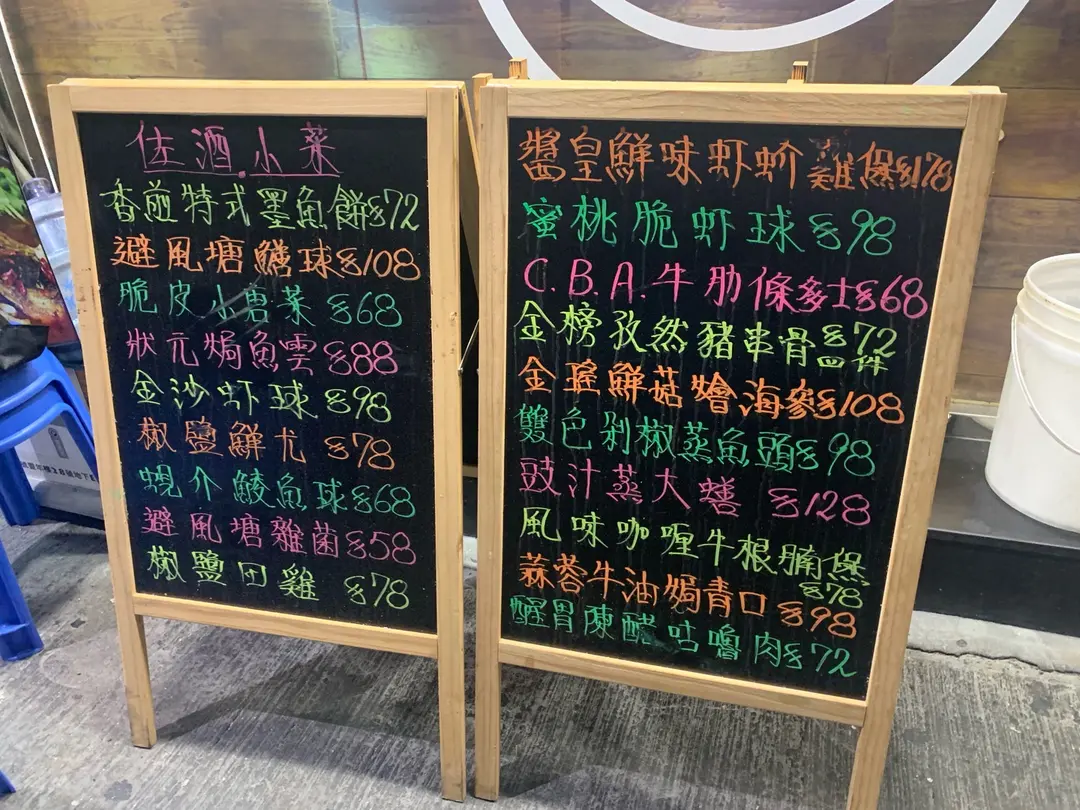 佐酒小菜
香煎特式墨魚餅$72
避風塘鱔球$108
脆皮小唐菜 $68
狀元焗魚雲$88
金沙虾球 $98
椒鹽鮮尤 $78
蜆介鯪魚球$68
避風塘雜菌$58
椒鹽田雞 $78
醬皇鮮味虾蚧雞煲$178
蜜桃脆虾球$98
C.B.A.牛肋條多士$68
金榜孜然豬串骨$72
四件
金瑤鮮菇燴海參$108
雙色剁椒蒸魚頭$98
豉汁蒸大鱔 $128
風味咖喱牛根腩煲
$78
蒜蓉牛油焗青口 $98
醒胃陳醋咕嚕肉$72